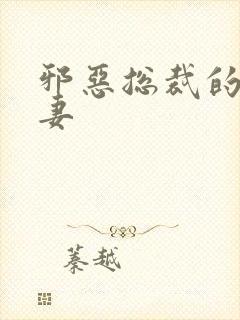 邪恶总裁的
妻
蓁越